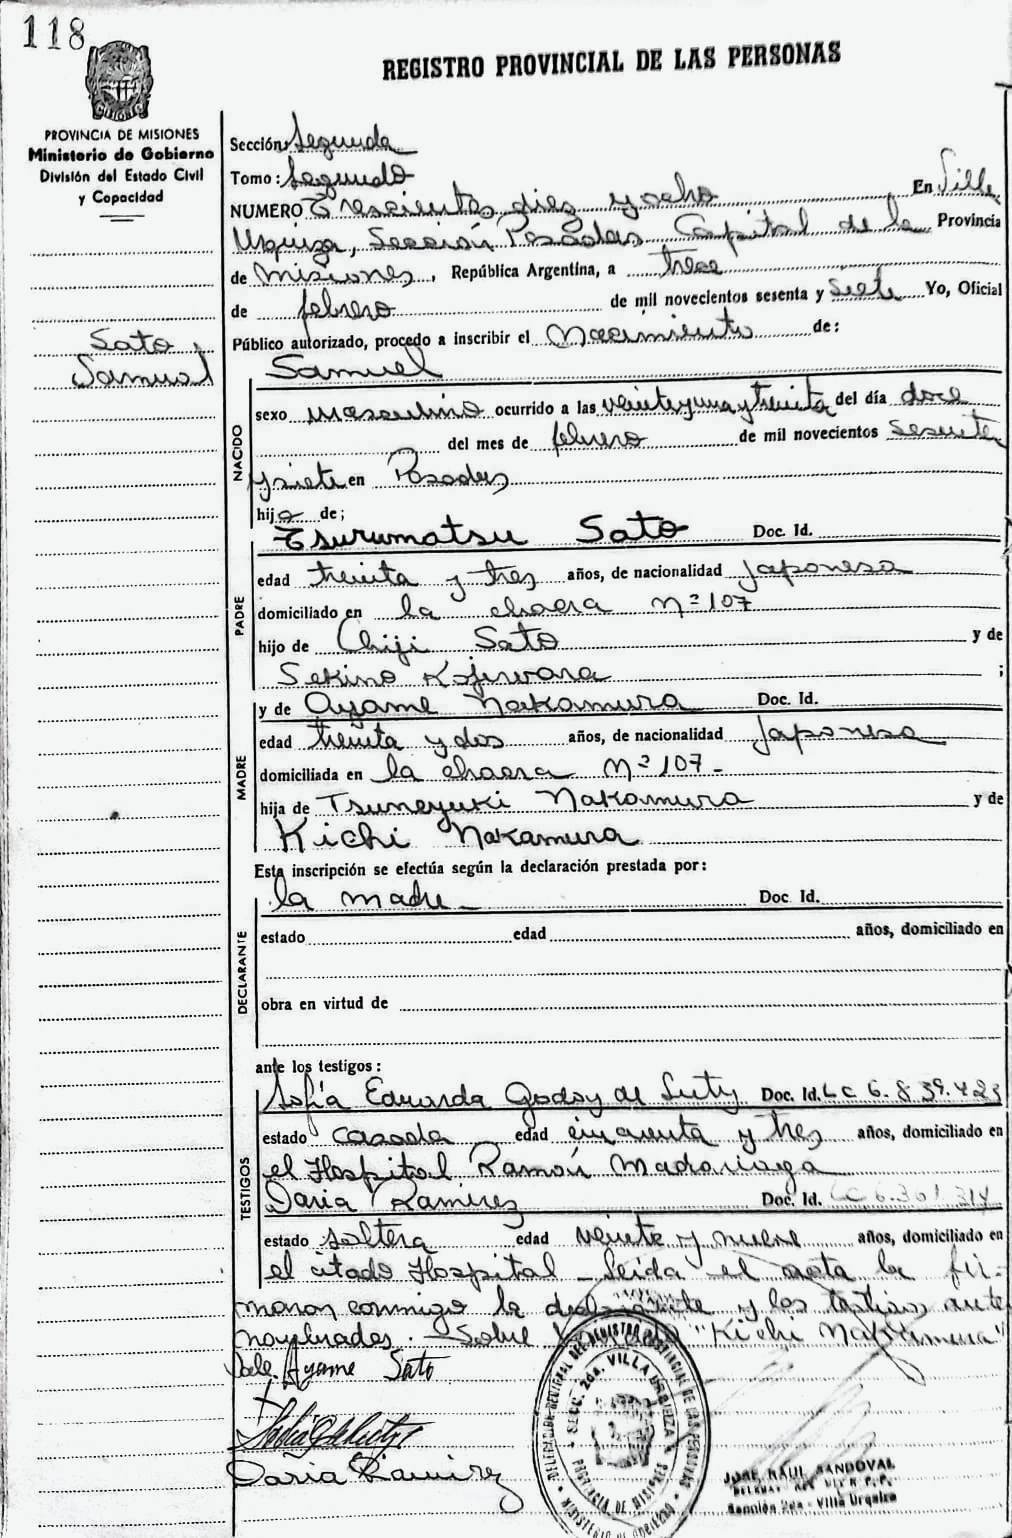 118
REGISTRO PROVINCIAL DE LAS PERSONAS
PROVINCIA DE MISIONES
Ministerio de Gobierno
División del Estado Civil
y Capacidad
Sato
Samuel
Sección: Segunda
Tomo: Segundo
NUMERO Trescientos diez y ocho En Villa
Urquiza, Sección Posadas Capital de la Provincia
de Misiones, República Argentina, a trece
de febrero de mil novecientos sesenta y siete Yo, Oficial
Público autorizado, procedo a inscribir el Nacimiento de:
Samuel
NACIDO
sexo masculino ocurrido a las veinte y una y treinta del día doce
del mes de febrero de mil novecientos sesenta
y siete en Posadas
hijo de;
PADRE
Tsurumatsu Sato Doc. Id.
edad treinta y tres años, de nacionalidad japonesa
domiciliado en la chacra Nº 107
hijo de Chiji Sato y de
Sekino Kojiwara ;
MADRE
y de Ayame Nakamura Doc. Id.
edad treinta y dos años, de nacionalidad japonesa
domiciliada en la chacra Nº 107-
hija de Tsuneyuki Nakamura y de
Kichi Nakamura
Esta inscripción se efectúa según la declaración prestada por:
DECLARANTE
la madre- Doc. Id.
estado edad años, domiciliado en
obra en virtud de
ante los testigos:
TESTIGOS
Sofía Eduarda Godoy de Doc. Id. LC 6.839.423
estado casada edad cincuenta y tres años, domiciliado en
el Hospital Ramón Madariaga
Daria Ramirez Doc. Id. LC 6.301.314
estado soltera edad veinte y nueve años, domiciliado en
el citado Hospital - Leida el acta la fir-
maron conmigo la declarante y los testigos ante
nombrados. - Sobre "Kichi Nakamura"
Vale. Ayame Sato
Daria Ramirez
DELEGACION REGIONAL DEL REGISTRO PROVINCIAL DE LAS PERSONAS
SECC. 2da. VILLA URQUIZA
PROVINCIA DE MISIONES
MINISTERIO DE GOBIERNO
JOSE RAUL SANDOVAL
Sección 2da - Villa Urquiza